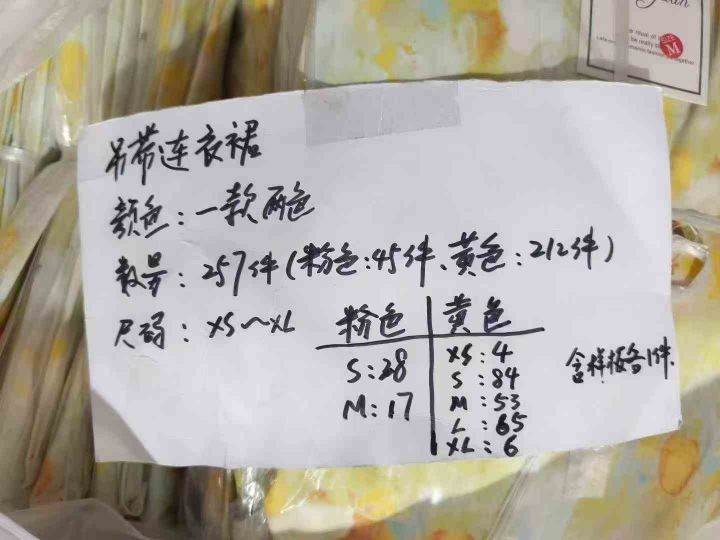 吊带连衣裙
颜色：一款两色
数量：257件（粉色：45件、黄色：212件）
尺码：XS～XL
粉色
S：28
M：17
黄色
XS：4
S：84
M：53
L：65
XL：6
含样板各1件.
SIZE
M